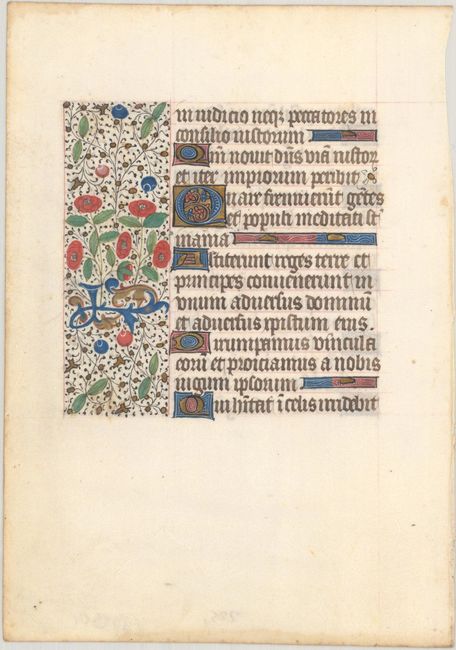 in iudicio neqz peccatores in
consilio iustorum
Qm nouit dns uia iustor
et iter impiorum peribit
Quare fremuerut getes
et populi meditati st
inania
Astiterunt reges terre et
principes convenerunt in
vnum aduersus dominu
et aduersus xpistum eius.
Dirumpamus vincula
coru et proiciamus a nobis
iugum ipsorum
Qui hitat i celis irridebit